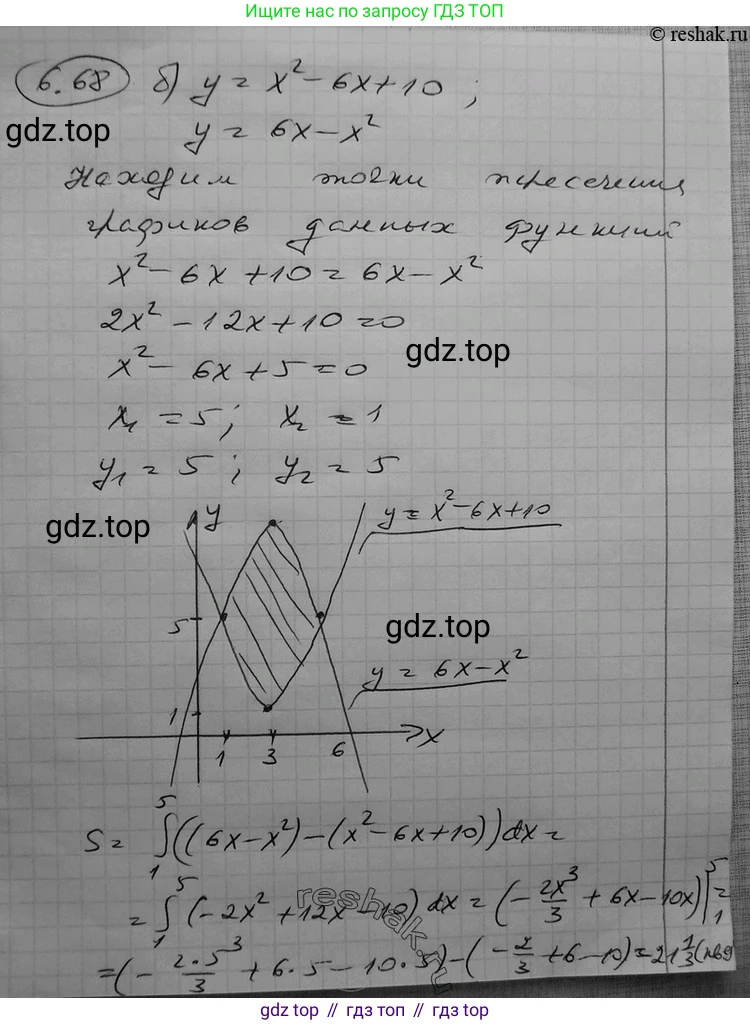 Ищите нас по запросу ГДЗ ТОП
© reshak.ru
6.68 б) y = x² - 6x + 10 ;
gdz.top
y = 6x - x²
Находим точки пересечения
графиков данных функций
x² - 6x + 10 = 6x - x²
2x² - 12x + 10 = 0
gdz.top
x² - 6x + 5 = 0
x₁ = 5; x₂ = 1
y₁ = 5; y₂ = 5
y
y = x² - 6x + 10
gdz.top
5
gdz.top
y = 6x - x²
1
1 3 6 x
S = ∫₁⁵ ((6x - x²) - (x² - 6x + 10)) dx =
= ∫₁⁵ (-2x² + 12x - 10) dx = (-2x³/3 + 6x - 10x) |₁⁵ =
reshak.ru
= (-2·5³/3 + 6·5 - 10·5) - (-2/3 + 6 - 10) = 21 1/3 (кв
gdz.top // гдз топ // gdz.top // гдз топ // gdz.top